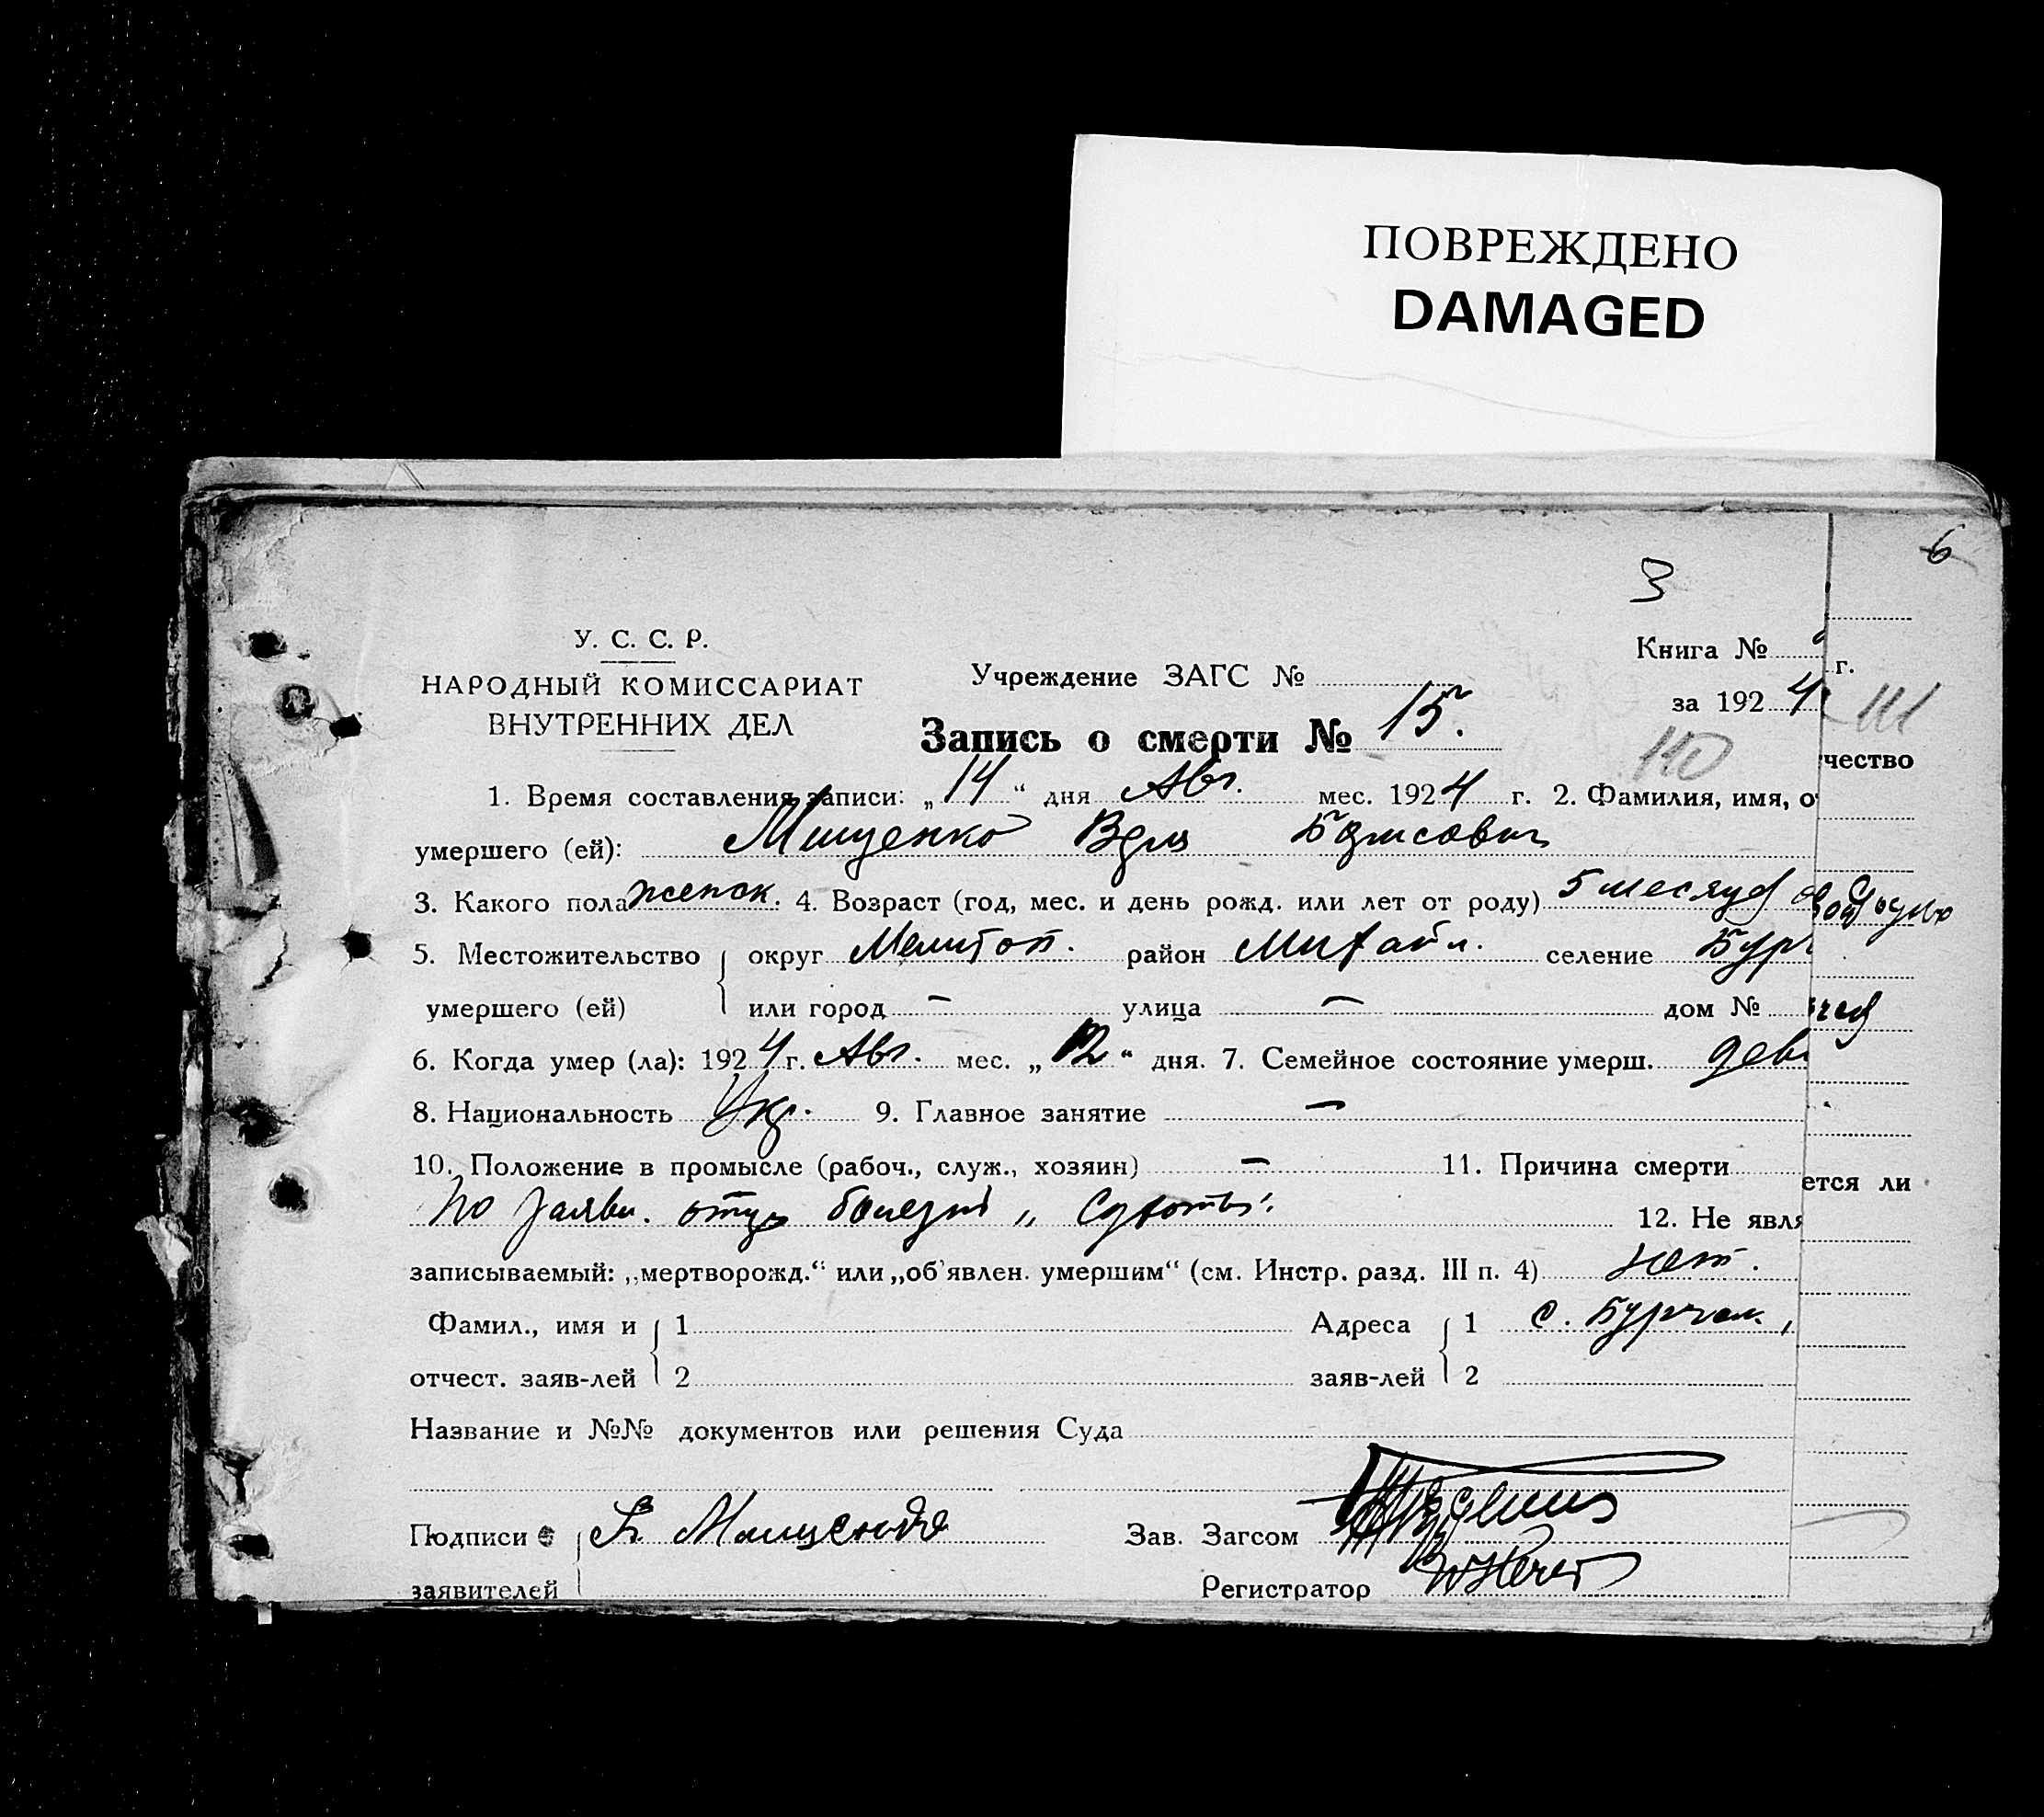 ПОВРЕЖДЕНО
DAMAGED
6
3
У. С. С. Р.
НАРОДНЫЙ КОМИССАРИАТ
ВНУТРЕННИХ ДЕЛ
Учреждение ЗАГС №
Книга №
г.
за 1924
Запись о смерти № 15.
110
111
чество
1. Время составления записи: „14“ дня Авг. мес. 1924 г. 2. Фамилия, имя, о
умершего (ей): Мищенко Борисович
3. Какого пола женск. 4. Возраст (год, мес. и день рожд. или лет от роду) 5 месяцев
5. Местожительство округ Мелитоп. район Михайл. селение Бурч
умершего (ей) или город — улица — дом №
6. Когда умер (ла): 1924 г. Авг. мес. „12“ дня. 7. Семейное состояние умерш. дев
8. Национальность Укр. 9. Главное занятие —
10. Положение в промысле (рабоч., служ., хозяин) — 11. Причина смерти
ется ли
По заявл. отца болезни „ Сухоты.
12. Не явля
записываемый: „мертворожд.“ или „об'явлен. умершим“ (см. Инстр. разд. III п. 4) нет.
Фамил., имя и 1 Адреса 1 с. Бурчак,
отчест. заяв-лей 2 заяв-лей 2
Название и №№ документов или решения Суда
Подписи Мищенко Зав. Загсом
заявителей Регистратор